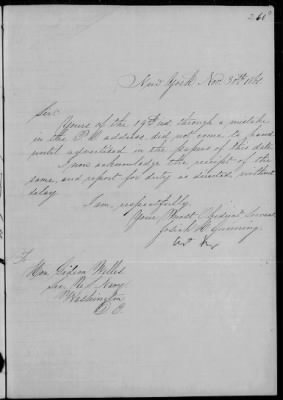 New York Nov. 30th 1861
Sir:
Yours of the 19th through a mistake
in the P.O. address did not come to hand
until advertised in the papers of this date.
I now acknowledge the receipt of the
same, and report for duty as directed, without
delay.
I am, respectfully,
Your Most Obedient Servant
Josiah H. Gunning
To
Hon. Gideon Welles
Sec. Navy
Washington
D. C.